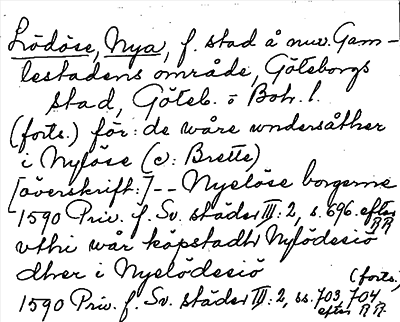 Lödöse, Nya, f. stad å nuv. Gam-
lestadens område, Göteborgs
stad, Göteb. o Boh. l.
(forts.) för: de wåre wndersåther
i Nylöse (c: Brette)
[överskrift:] -- Nyelöse borgerne
1590 Priv. f. Sv. städer III: 2, s. 696. efter RA
vthi wår köpstadh Nylödesiö
dher i Nyelödesiö
(forts.)
1590 Priv. f. Sv. städer III: 2, ss. 703, 704, efter RA.